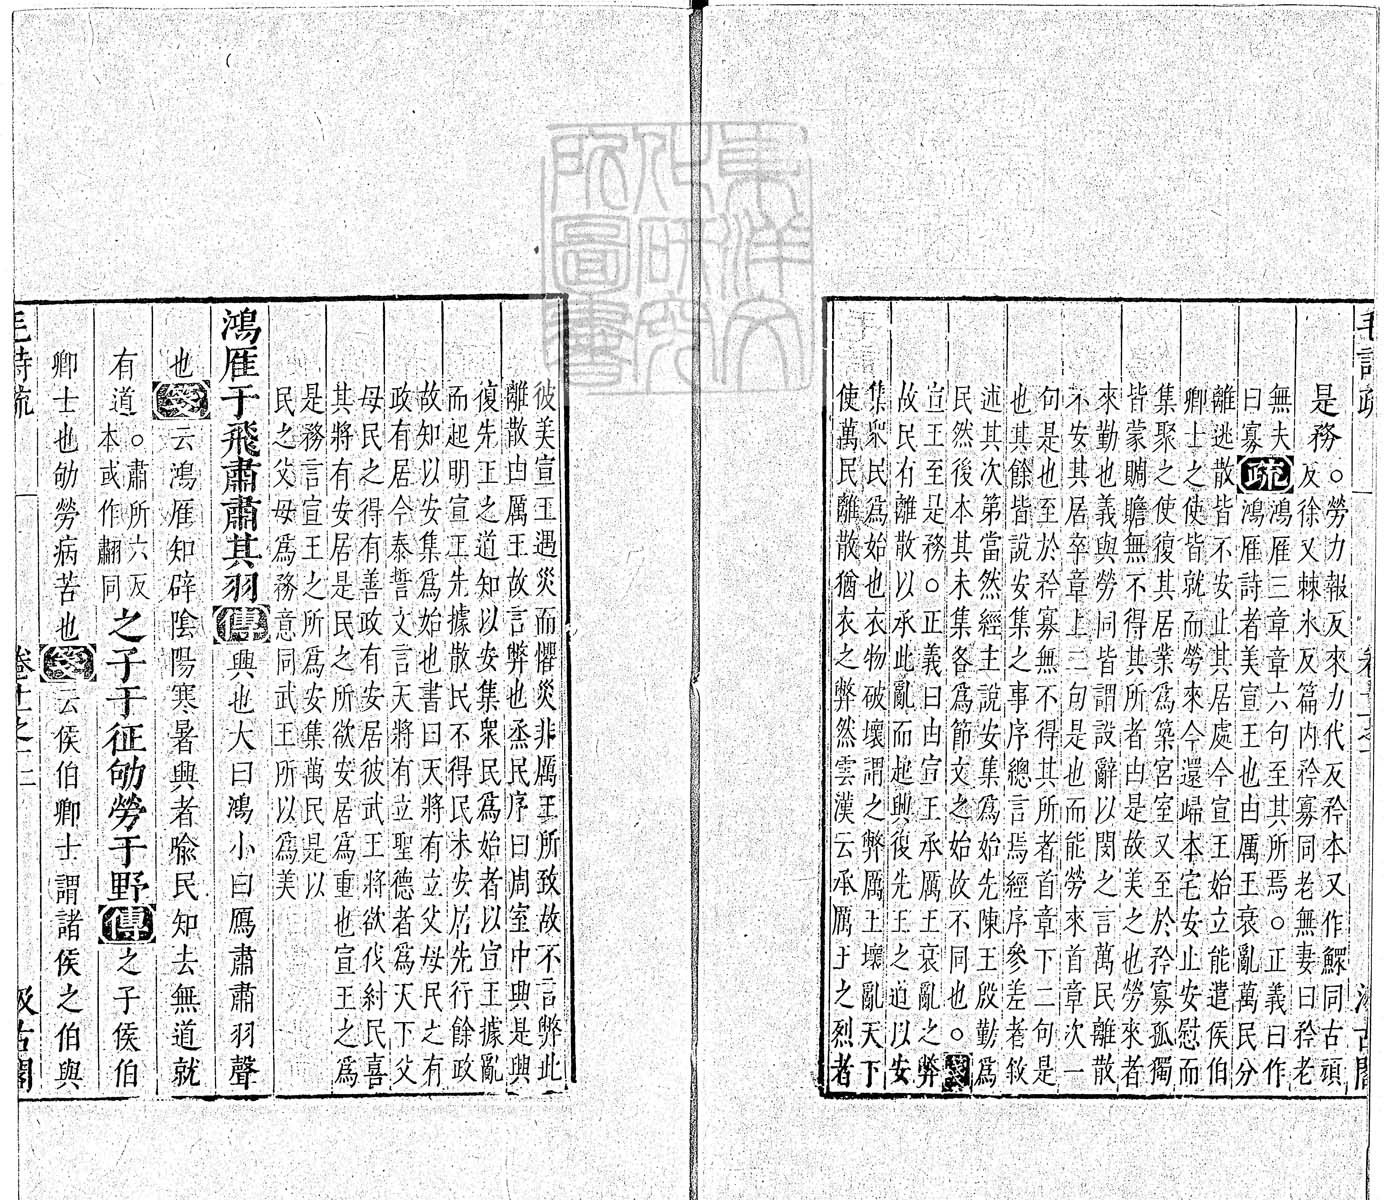 毛詩疏 卷十一之一 汲古閣
是務○勞力報反來力代反矜本又作鰥同古頑
反徐又棘氷反篇内矜寡同老無妻曰矜老
無夫
曰寡疏鴻雁三章章六句至其所焉○正義曰作
鴻雁詩者美宣王也由厲王衰亂萬民分
離逃散皆不安止其居處今宣王始立能遣侯伯
卿士之使皆就而勞來今還歸本宅安止安慰而
集聚之使復其居業為築宮室又至於矜寡孤獨
皆蒙賙贍無不得其所者由是故美之也勞來者
來勤也義與勞同皆謂設辭以閔之言萬民離散
不安其居卒章上二句是也而能勞來首章次一
句是也至於矜寡無不得其所者首章下二句是
也其餘皆説安集之事序總言焉經序參差者敘
述其次第當然經主説安集為始先陳王殷勤為
民然後本其未集各為節文之始故不同也○箋
宣王至是務○正義曰由宣王承厲王衰亂之弊
故民有離散以承此亂而起興復先王之道以安
集衆民為始也衣物破壞謂之弊厲王壞亂天下
使萬民離散猶衣之弊然雲漢云承厲王之烈者
彼美宣王遇災而懼災非厲王所致故不言弊此
離散由厲王故言弊也烝民序曰周室中興是興
復先王之道知以安集衆民為始者以宣王據亂
而起明宣王先據散民不得民未安居先行餘政
故知以安集為始也書曰天將有立父母民之有
政有居今泰誓文言天將有立聖德者為天下父
母民之得有善政有安居彼武王將欲伐紂民喜
其將有安居是民之所欲安居為重也宣王之為
是務言宣王之所為安集萬民是以
民之父母為務意同武王所以為美
鴻雁于飛肅肅其羽傳興也大曰鴻小曰鴈肅肅羽聲
也箋云鴻雁知辟陰陽寒暑興者喻民知去無道就
有道○肅所六反
本或作翿同之子于征劬勞于野傳之子侯伯
卿士也劬勞病苦也箋云侯伯卿士謂諸侯之伯與
毛詩疏 卷十一之一 二 汲古閣
東洋文化研究所圖書